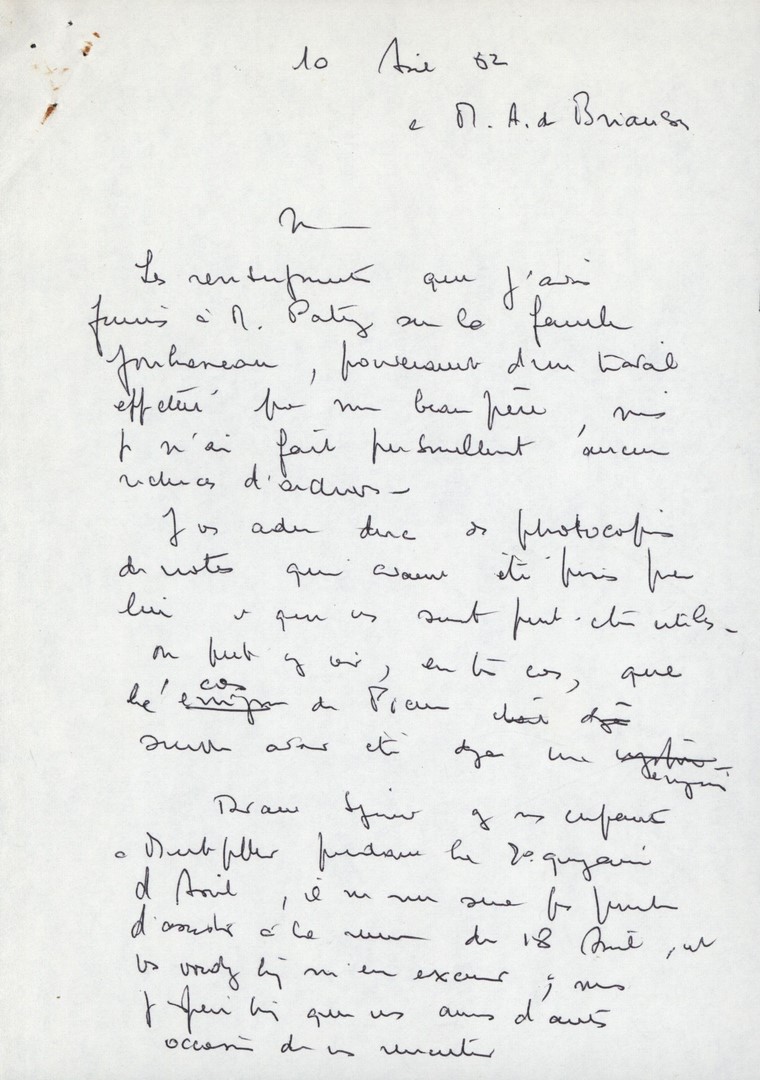 10 Avril 82
à M. A. de Briançon
M
Les renseignements que j'avais
fournis à M. Patry sur la famille
Jonhaneau, provenaient d'un travail
effectué par mon beau père, mais
je n'ai fait personnellement aucune
recherches d'archives -
Je vs adresse donc des photocopies
de notes qui avaient été prises par
lui et qui vs seront peut-être utiles -
on peut y voir, en ts cas, que
le cas de Pierre était déjà
semble avoir été déjà une énigme -
Devant séjourner avec mes enfants
à Montpellier pendant la 2e quinzaine
d'Avril, il ne me sera pas possible
d'assister à la réunion du 18 Avril, et
vs voudrez bien m'en excuser ; mais
j'espère bien que ns aurons d'autres
occasions de ns rencontrer